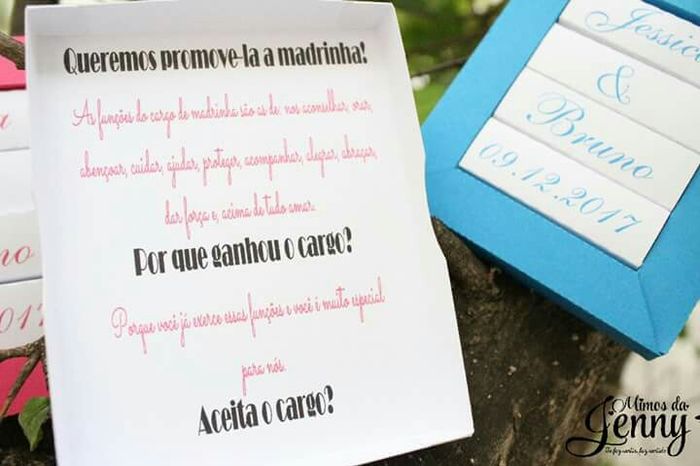 Queremos promove-la a madrinha!
As funções do cargo de madrinha são as de: nos aconselhar, orar,
abençoar, cuidar, ajudar, proteger, acompanhar, alegrar, abraçar,
dar força e, acima de tudo amar.
Por que ganhou o cargo?
Porque você já exerce essas funções e você é muito especial
para nós.
Aceita o cargo?
Jessica
&
Bruno
09.12.2017
a
no
017
Mimos da
Jenny